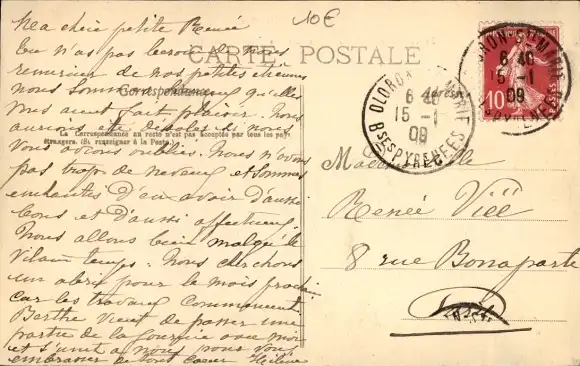 10€
CARTE POSTALE
Correspondance
Adresse
La Correspondance au recto n'est pas acceptée par tous les pays
étrangers. (Se renseigner à la Poste).
Ma chère petite Renée
Tu n'as pas besoin de nous
remercier de nos petites
nous sommes qu'elles
aient fait plaisir. Nous
aurions été si nous
vous avions oubliés. Nous n'avons
pas trop de et sommes
enchantés d'en avoir d'aussi
bons et d'aussi affectueux.
Nous allons bien malgré le
vilain temps. Nous cherchons
un abri pour le mois prochain
car les travaux commencent.
Berthe vient de passer une
partie de la avec moi
et s'unit à nous pour vous
embrasser de tout cœur Hélène
OLORON-STE-MARIE
6 40
15 -1
09
BSES PYRENEES
10
Renée Viéë
8 rue Bonaparte